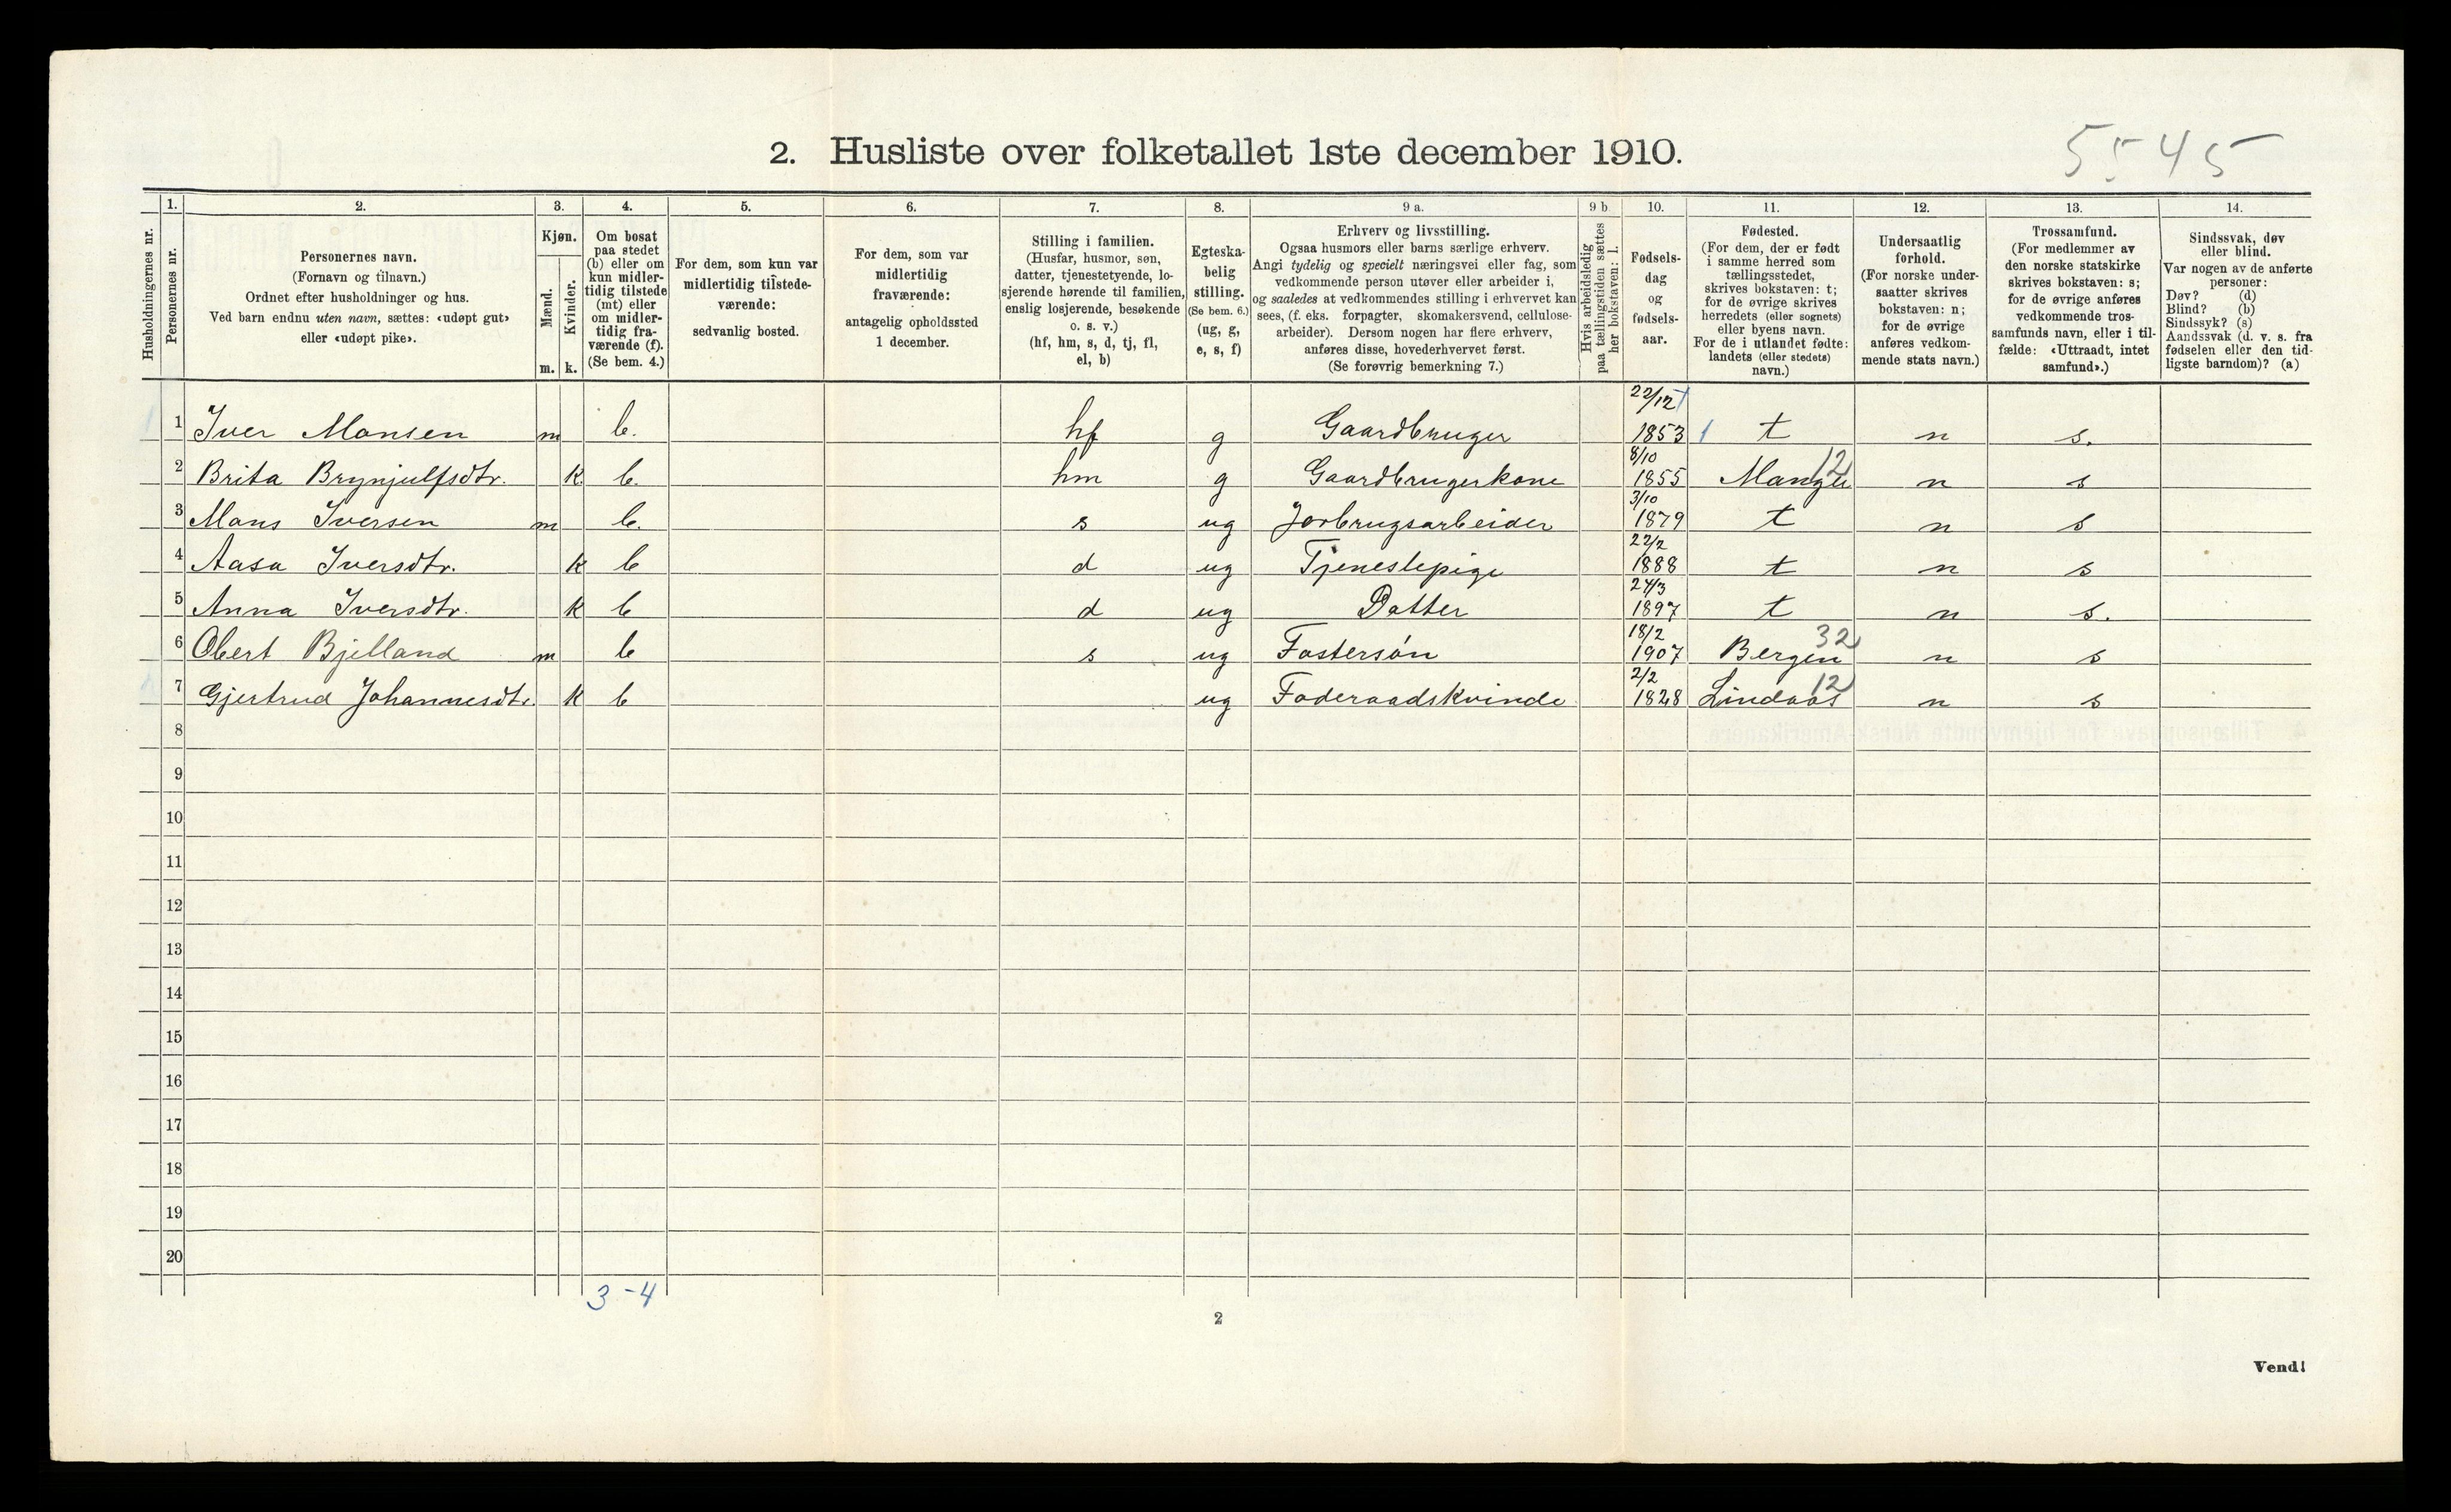 2. Husliste over folketallet 1ste december 1910.
5545
Husholdningernes nr.
1.
Personernes nr.
2.
Personernes navn.
(Fornavn og tilnavn.)
Ordnet efter husholdninger og hus.
Ved barn endnu uten navn, sættes: «udøpt gut»
eller «udøpt pike».
3.
Kjøn.
Mænd.
Kvinder.
m. k.
4.
Om bosat
paa stedet
(b) eller om
kun midler-
tidig tilstede
(mt) eller
om midler-
tidig fra-
værende (f).
(Se bem. 4.)
5.
For dem, som kun var
midlertidig tilstede-
værende:
sedvanlig bosted.
6.
For dem, som var
midlertidig
fraværende:
antagelig opholdssted
1 december.
7.
Stilling i familien.
(Husfar, husmor, søn,
datter, tjenestetyende, lo-
sjerende hørende til familien,
enslig losjerende, besøkende
o. s. v.)
(hf, hm, s, d, tj, fl,
el, b)
8.
Egteska-
belig
stilling.
(Se bem. 6.)
(ug, g,
e, s, f)
9 a.
Erhverv og livsstilling.
Ogsaa husmors eller barns særlige erhverv.
Angi tydelig og specielt næringsvei eller fag, som
vedkommende person utøver eller arbeider i,
og saaledes at vedkommendes stilling i erhvervet kan
sees, (f. eks. forpagter, skomakersvend, cellulose-
arbeider). Dersom nogen har flere erhverv,
anføres disse, hovederhvervet først.
(Se forøvrig bemerkning 7.)
9 b
Hvis arbeidsledig
paa tællingstiden sættes
her bokstaven: l.
10.
Fødsels-
dag
og
fødsels-
aar.
11.
Fødested.
(For dem, der er født
i samme herred som
tællingsstedet,
skrives bokstaven: t;
for de øvrige skrives
herredets (eller sognets)
eller byens navn.
For de i utlandet fødte:
landets (eller stedets)
navn.)
12.
Undersaatlig
forhold.
(For norske under-
saatter skrives
bokstaven: n;
for de øvrige
anføres vedkom-
mende stats navn.)
13.
Trossamfund.
(For medlemmer av
den norske statskirke
skrives bokstaven: s;
for de øvrige anføres
vedkommende tros-
samfunds navn, eller i til-
fælde: «Uttraadt, intet
samfund».)
14.
Sindssvak, døv
eller blind.
Var nogen av de anførte
personer:
Døv? (d)
Blind? (b)
Sindssyk? (s)
Aandssvak (d. v. s. fra
fødselen eller den tid-
ligste barndom)? (a)
1 1 Iver Monsen m b. hf g Gaardbruger 22/12 1853 1 t n s.
2 Brita Brynjulfsdtr. k. b. hm g Gaardbrugerkone 8/10 1855 Manger 12 n s
3 Mons Iversen m b. s ug Jorbrugsarbeider 3/10 1879 t n s
4 Aasa Iversdtr. k b d ug Tjenestepige 22/2 1888 t n s
5 Anna Iversdtr. k b d ug Datter 24/3 1897 t n s.
6 Obert Bjelland m b s ug Fostersøn 18/2 1907 Bergen 32 n s
7 Gjertrud Johannesdtr. k b ug Foderaadskvinde 2/2 1828 Lindaas 12 n s
8
9
10
11
12
13
14
15
16
17
18
19
20
3-4
2
Vend!